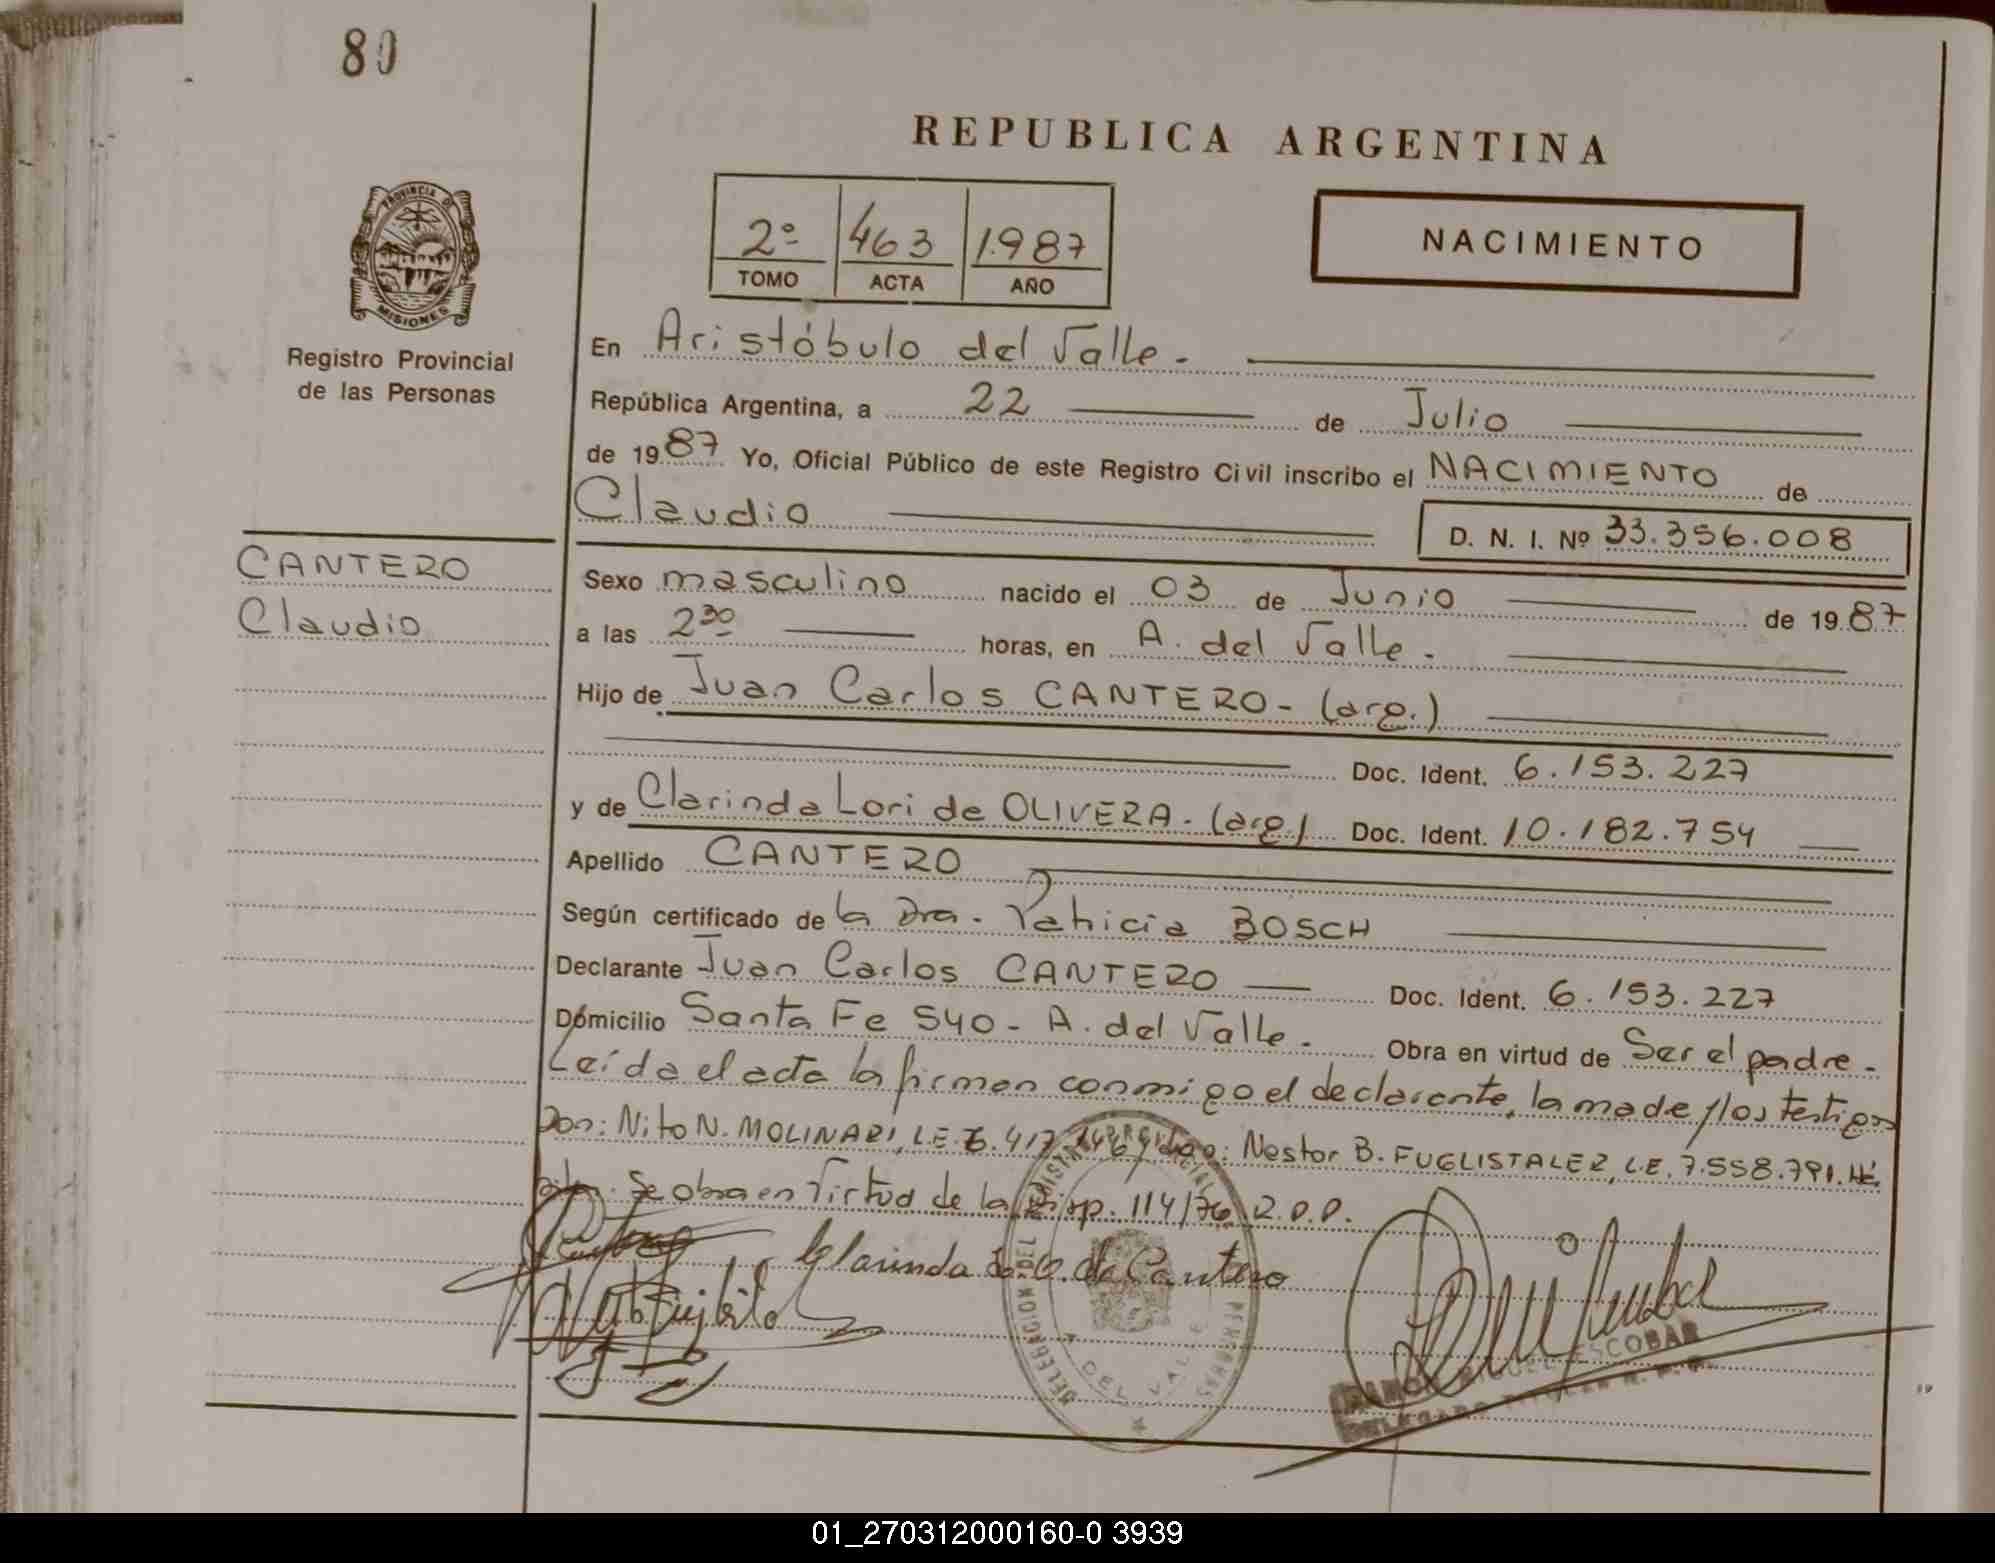 80
REPUBLICA ARGENTINA
PROVINCIA D
MISIONES
Registro Provincial
de las Personas
2º 463 1.987
TOMO ACTA AÑO
NACIMIENTO
En Aristóbulo del Valle.-
República Argentina, a 22 de Julio
de 1987 Yo, Oficial Público de este Registro Civil inscribo el NACIMIENTO de
Claudio D. N. I. Nº 33.356.008
CANTERO
Claudio
Sexo masculino nacido el 03 de Junio de 1987
a las 2³⁰ horas, en A. del Valle.-
Hijo de Juan Carlos CANTERO- (arg.)
Doc. Ident. 6.153.227
y de Clarinda Lori de OLIVERA. (arg.) Doc. Ident. 10.182.754
Apellido CANTERO
Según certificado de la Dra. Patricia BOSCH
Declarante Juan Carlos CANTERO Doc. Ident. 6.153.227
Domicilio Santa Fe 540- A. del Valle.- Obra en virtud de Ser el padre.-
Leída el acta la firman conmigo el declarante, la made y los testigos
Don: Nito N. MOLINARI, L.E. 6.417.146 y don: Nestor B. FUGLISTALER, L.E. 7.558.791.
Se obra en virtud de la Disp. 114/76 R.P.P.
Clarinda L. O. de Cantero
DELEGACION DEL REGISTRO PROVINCIAL PERSONAS
A. DEL VALLE
RAMON MIGUEL ESCOBAR
DELEGADO TITULAR R. P. P.
01_270312000160-0 3939